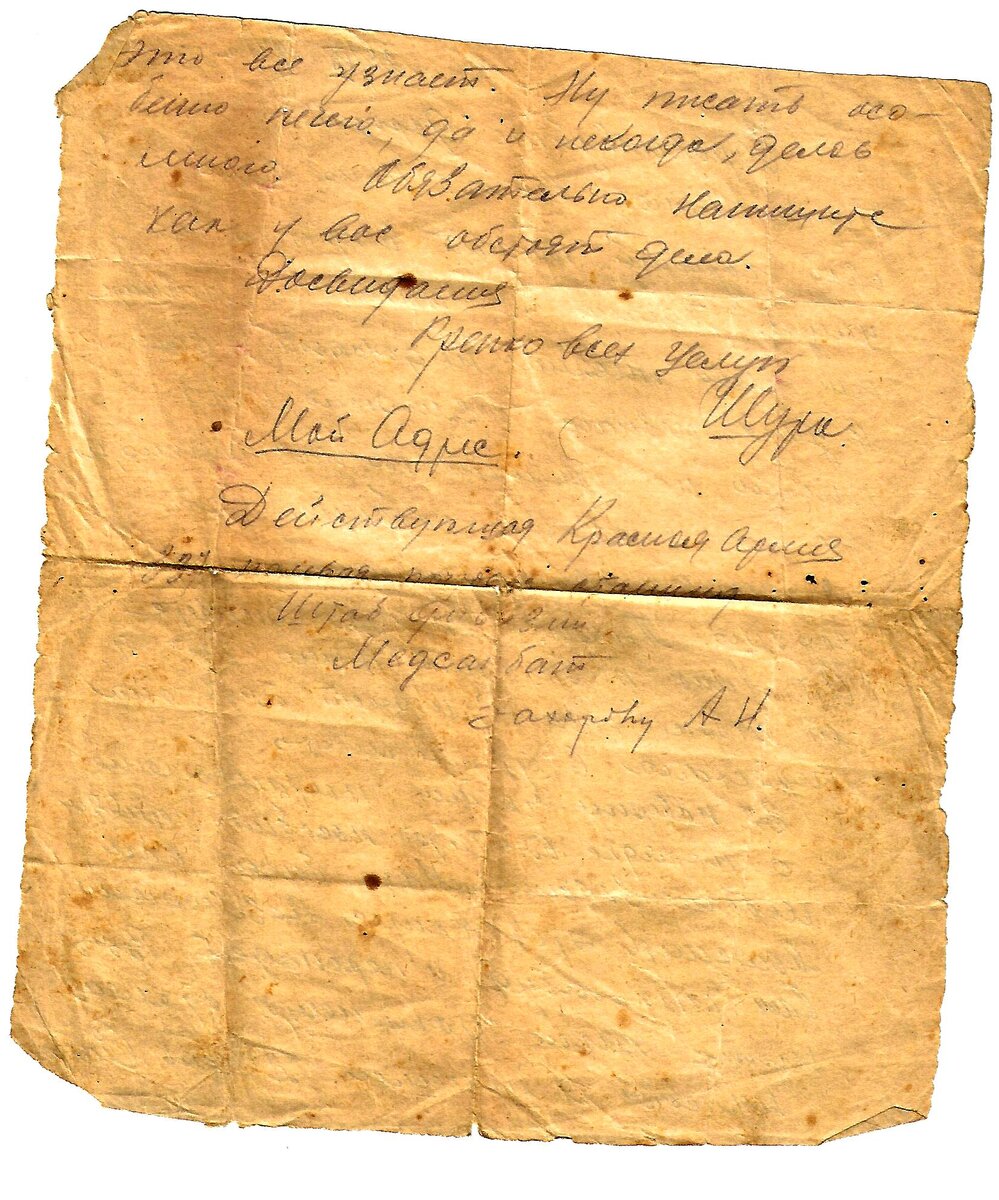 Это все узнает. Ну писать осо-
бенно нечего, да и некогда, делов
много. Обязательно напишите
как у вас обстоят дела.
Досвидания
Крепко всех целую
Шура.
Мой Адрес.
Действующая Красная Армия
полевая почтовая станция
Штаб дивизии.
Медсанбат
Захарову А И.